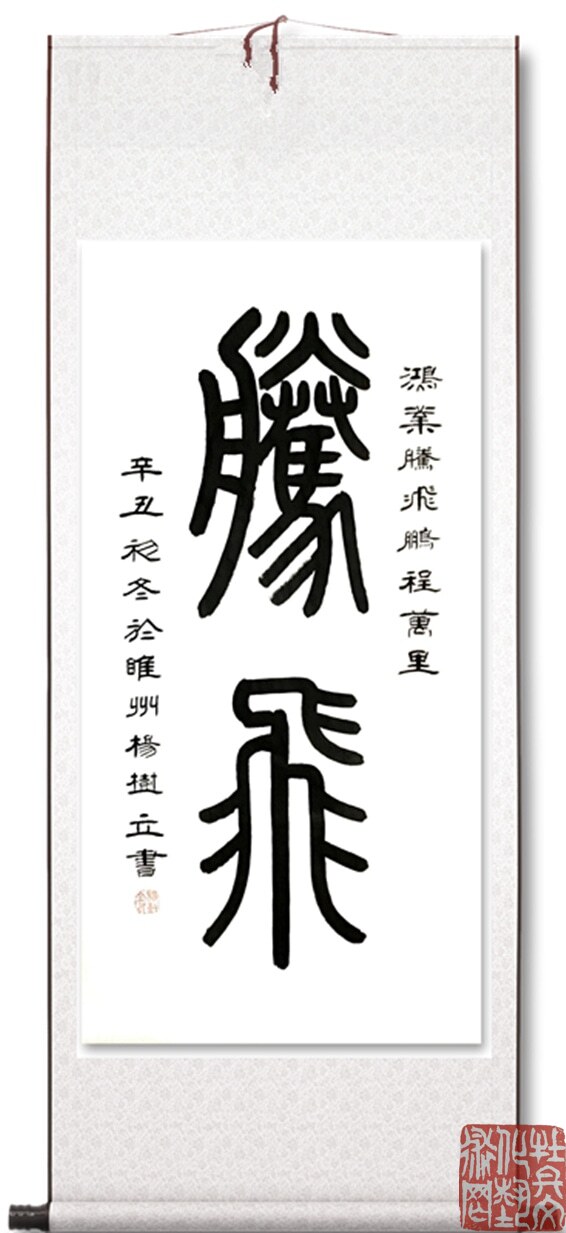 鴻業騰飛鵬程萬里
騰飛
辛丑初冬於睢州楊樹立書